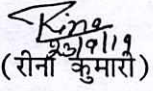 Rina
23/9/19
(रीना कुमारी)